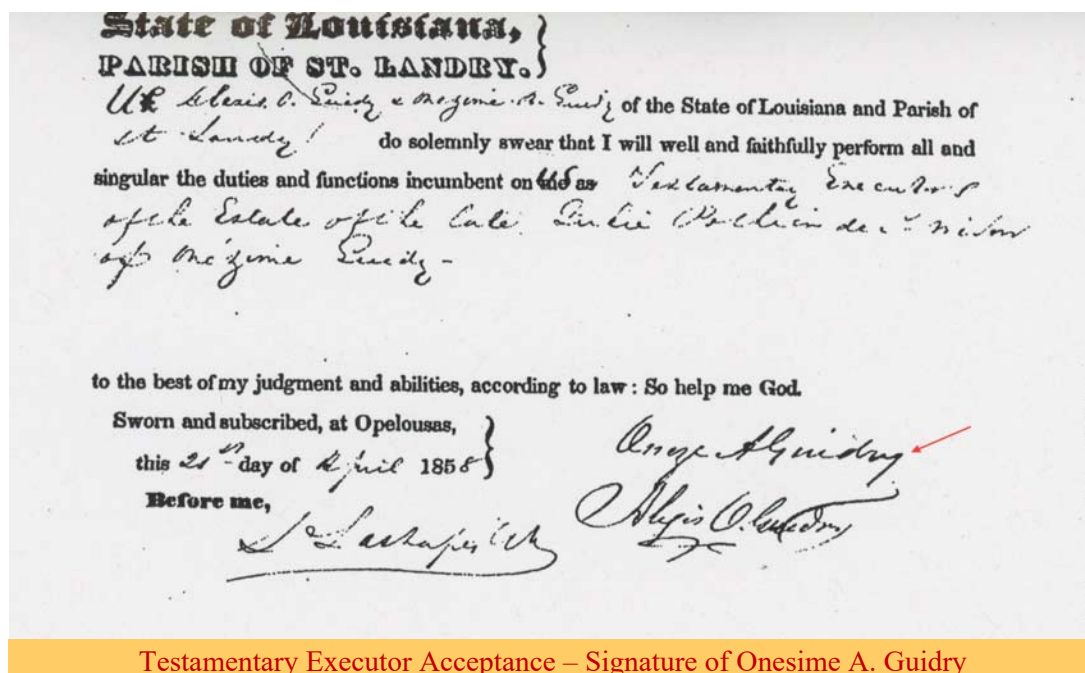 State of Louisiana,
PARISH OF ST. LANDRY.
We Alexis O. Guidy & Onezime A. Guidy of the State of Louisiana and Parish of
St Landry do solemnly swear that I will well and faithfully perform all and
singular the duties and functions incumbent on as Testamentary Executors
of the Estate of the late decd. widow
of Onézime Guidy -
to the best of my judgment and abilities, according to law: So help me God.
Sworn and subscribed, at Opelousas,
this 21st day of April 1858
Before me,
Onezé A Guidry
Alexis O. Guidry
Testamentary Executor Acceptance – Signature of Onesime A. Guidry